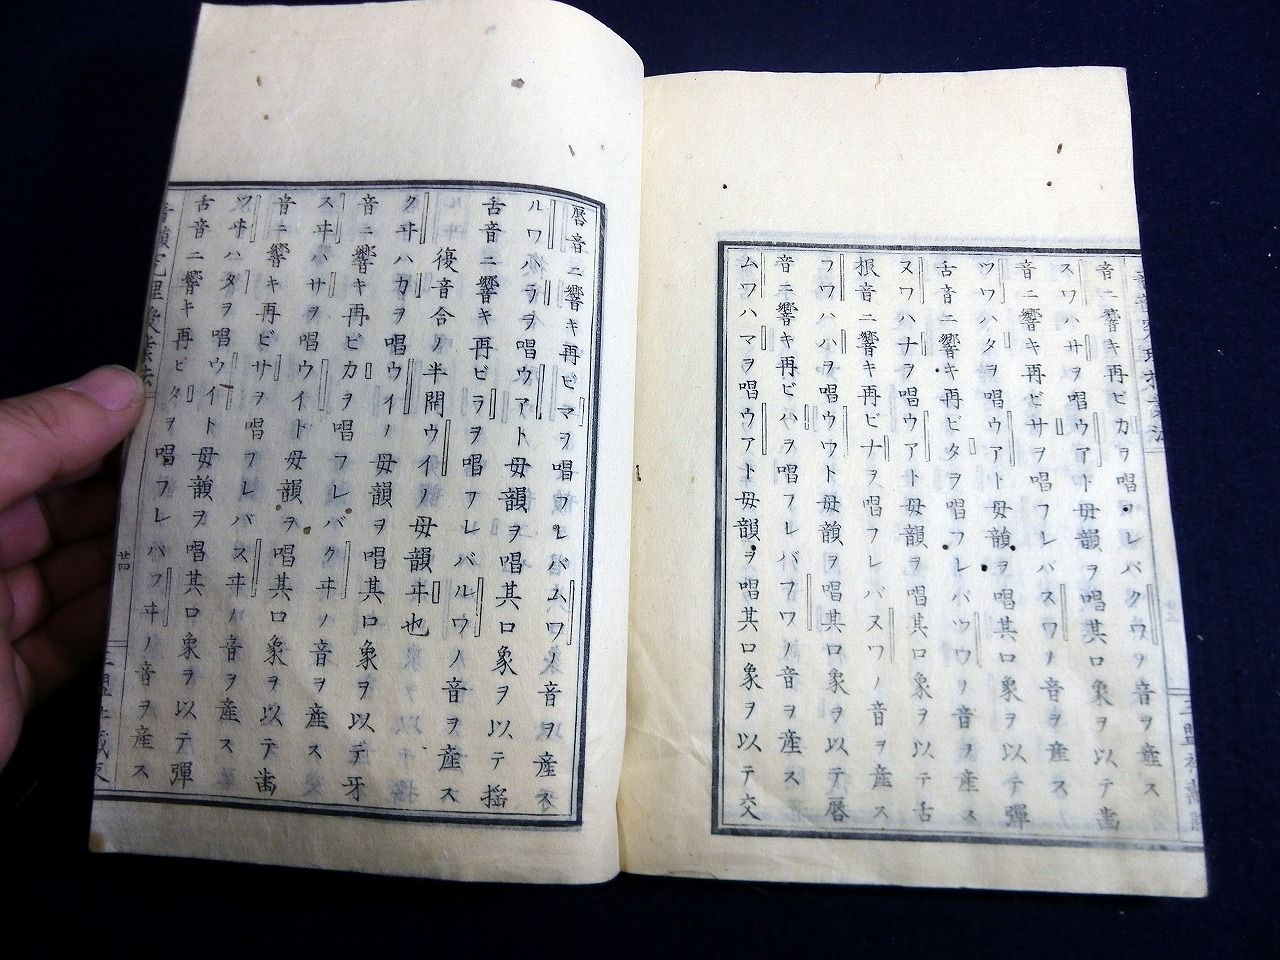 音ニ響キ再ビカヲ唱フレバクワノ音ヲ産ス
スワハサヲ唱ウアト母韻ヲ唱其口象ヲ以テ齒
音ニ響キ再ビサヲ唱フレバスワノ音ヲ産ス
ツワハタヲ唱ウアト母韻ヲ唱其口象ヲ以テ彈
舌音ニ響キ再ビタヲ唱フレバツワノ音ヲ産ス
ヌワハナヲ唱ウアト母韻ヲ唱其口象ヲ以テ舌
根音ニ響キ再ビナヲ唱フレバヌワノ音ヲ産ス
フワハハヲ唱ウウト母韻ヲ唱其口象ヲ以テ唇
音ニ響キ再ビハヲ唱フレバフワノ音ヲ産ス
ムワハマヲ唱ウアト母韻ヲ唱其口象ヲ以テ交
唇音ニ響キ再ビマヲ唱フレバムワノ音ヲ産ス
ルワハラヲ唱ウアト母韻ヲ唱其口象ヲ以テ搖
舌音ニ響キ再ビラヲ唱フレバルウノ音ヲ産ス
復音合ノ半開ウイノ母韻ヰ也
クヰハカヲ唱ウイノ母韻ヲ唱其口象ヲ以テ牙
音ニ響キ再ビカヲ唱フレバクヰノ音ヲ産ス
スヰハサヲ唱ウイト母韻ヲ唱其口象ヲ以テ齒
音ニ響キ再ビサヲ唱フレバスヰノ音ヲ産ス
ツヰハタヲ唱ウイト母韻ヲ唱其口象ヲ以テ彈
舌音ニ響キ再ビタヲ唱フレバフヰノ音ヲ産ス
廿四